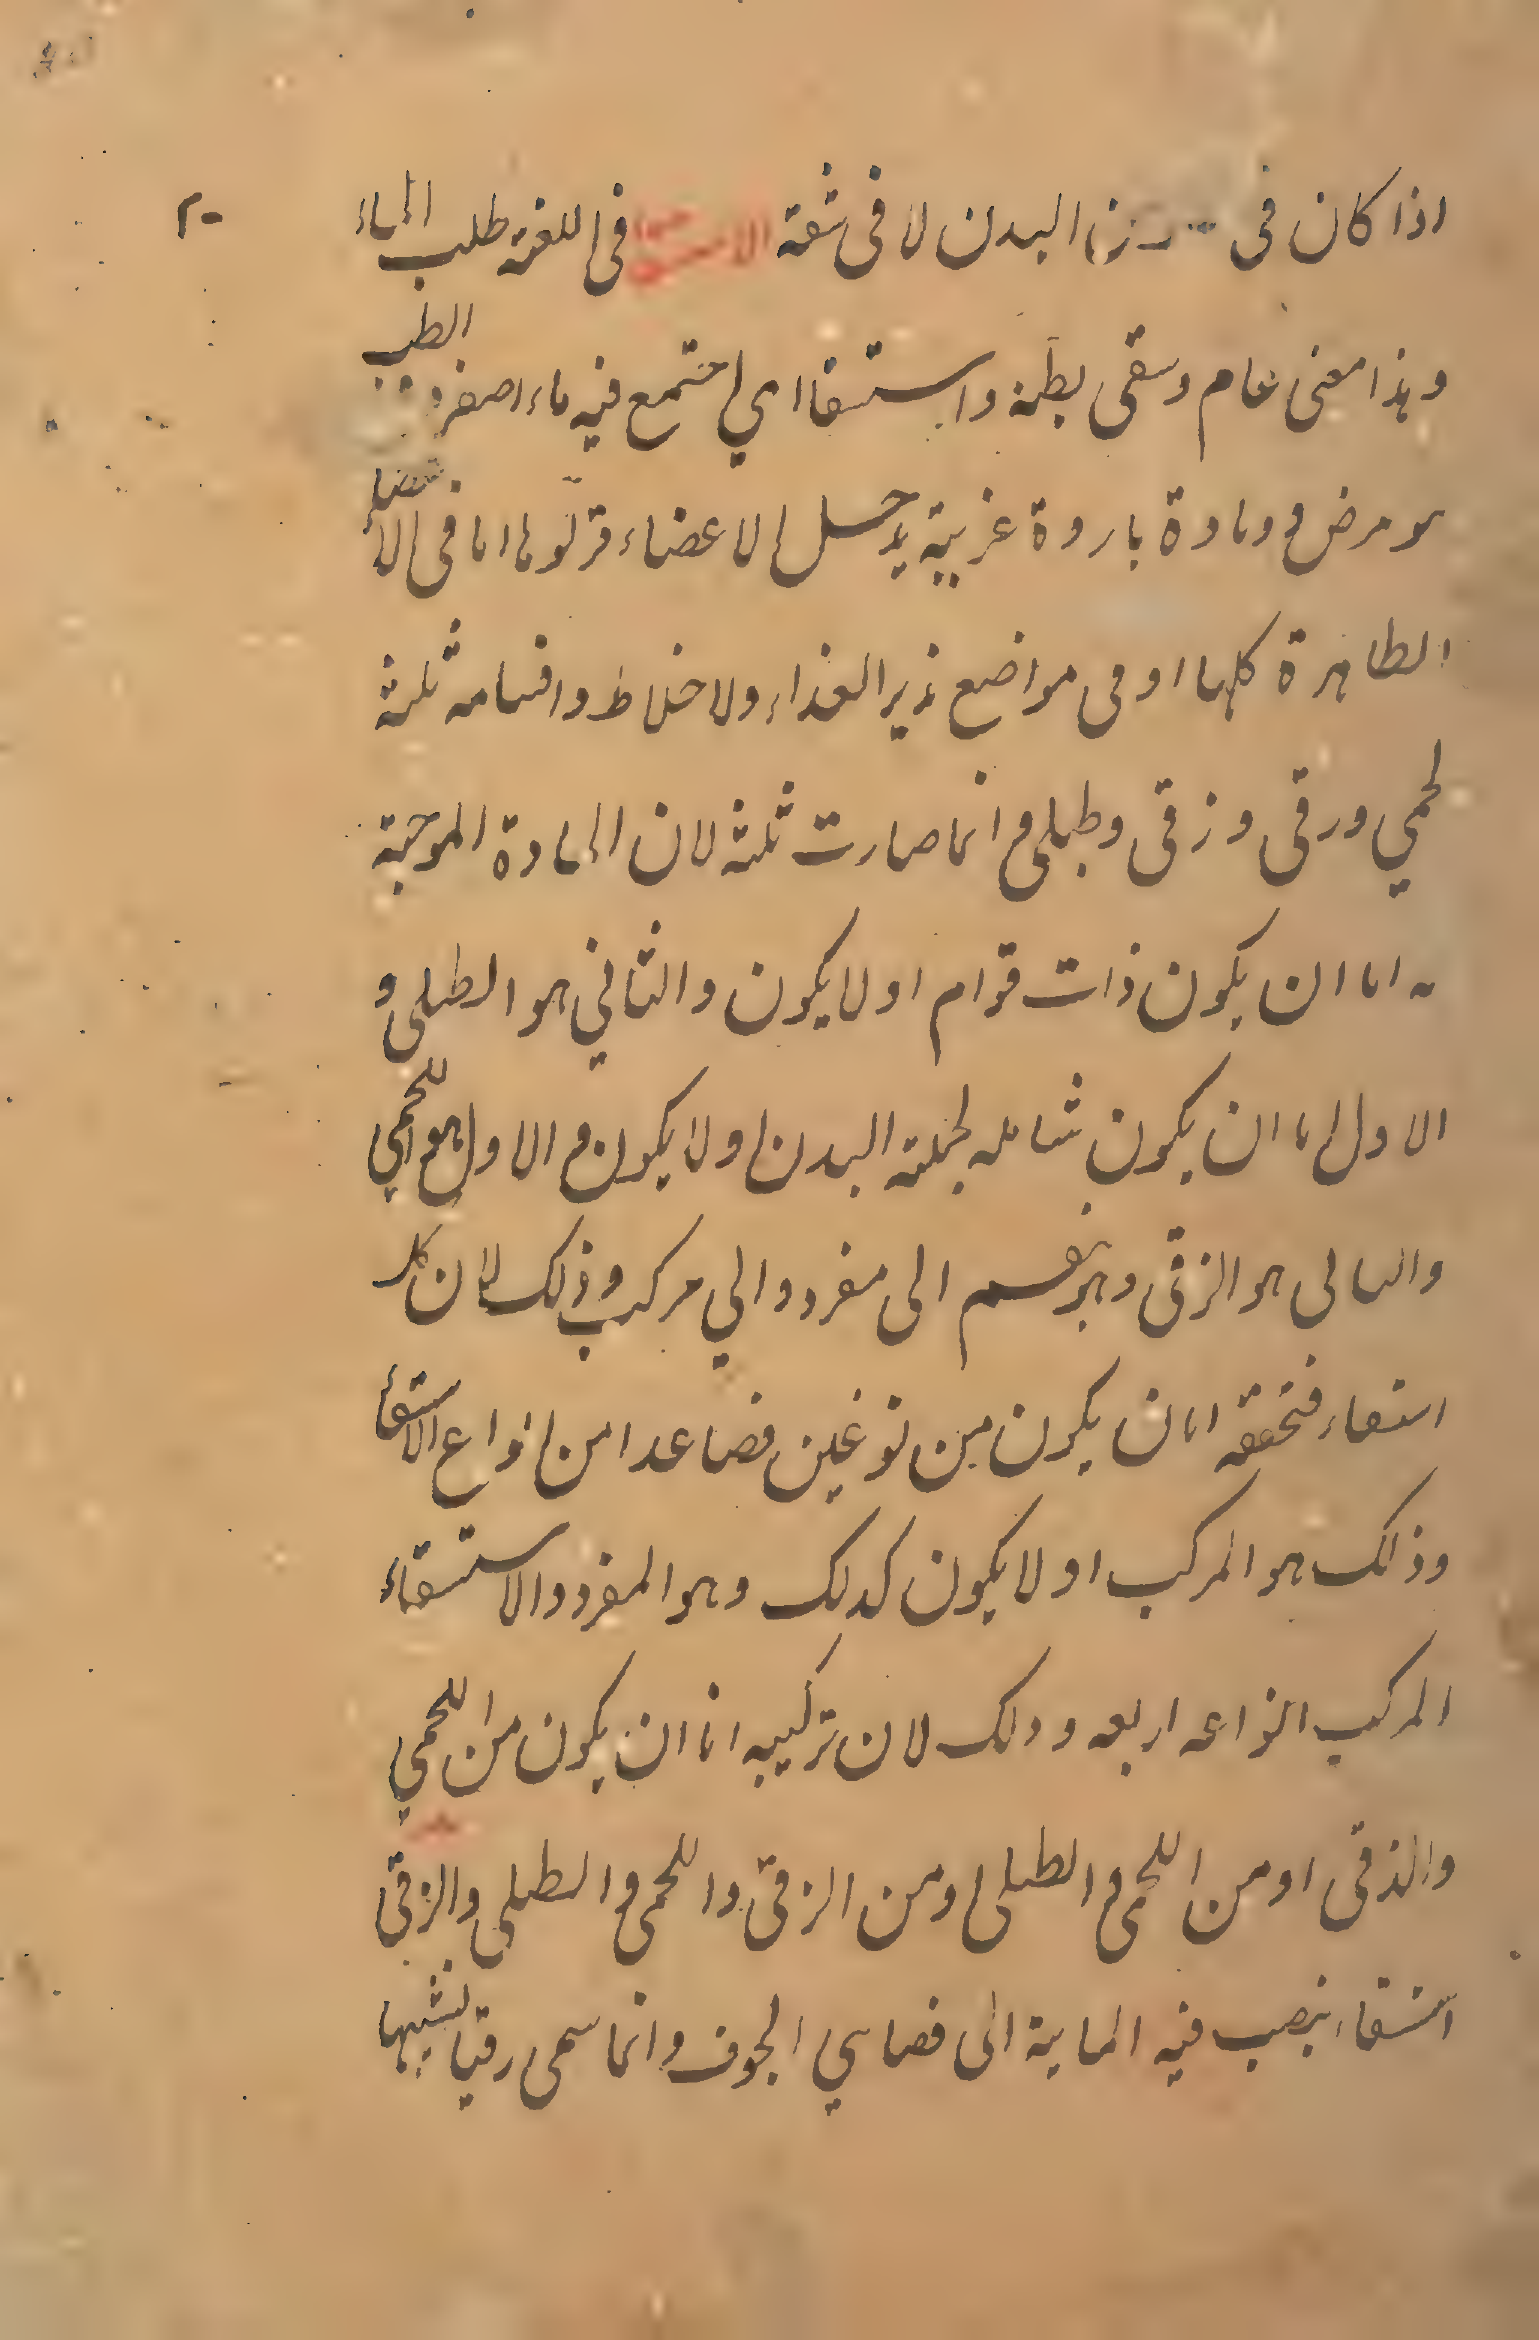 اذا كان فى البدن لا فى شقه الاستسقا فى اللغة طلب الماء
٢٠
وهذا معنى عام وسقى بطنه واستسقا اي اجتمع فيه ماء اصفر و الطب
هو مرض ومادة باردة غريبة يدخل الاعضاء فتربو لها اما فى الاعضا
الظاهرة كلها او فى مواضع تدبير الغذاء ولاخلاط واقسامه ثلثة
لحمي ورقى وزقى وطبلى وانما صارت ثلثه لان المادة الموجبة
له اما ان يكون ذات قوام او لا يكون والثاني هو الطبلى و
الاول اما ان يكون شامله لجملته البدن او لا يكون والاول هو اللحمي
والىالى هو الزقى وهو ينقسم الى مفرد والي مركب وذلك لان كل
استسقاء فتحققه اما ان يكون من نوعين فصاعدا من انواع الاستسقا
وذلك هو المركب او لا يكون كدلك وهو المفرد والاستسقاء
المركب انواعه اربعه ودلك لان تركيبه اما ان يكون من اللحمي
والزقى او من اللحمى والطبلى او من الزقى واللحمى والطبلى والزقى
استسقاء ينصب فيه الماىية الى فضاىي الجوف وانما سمى زقيا لشبهها